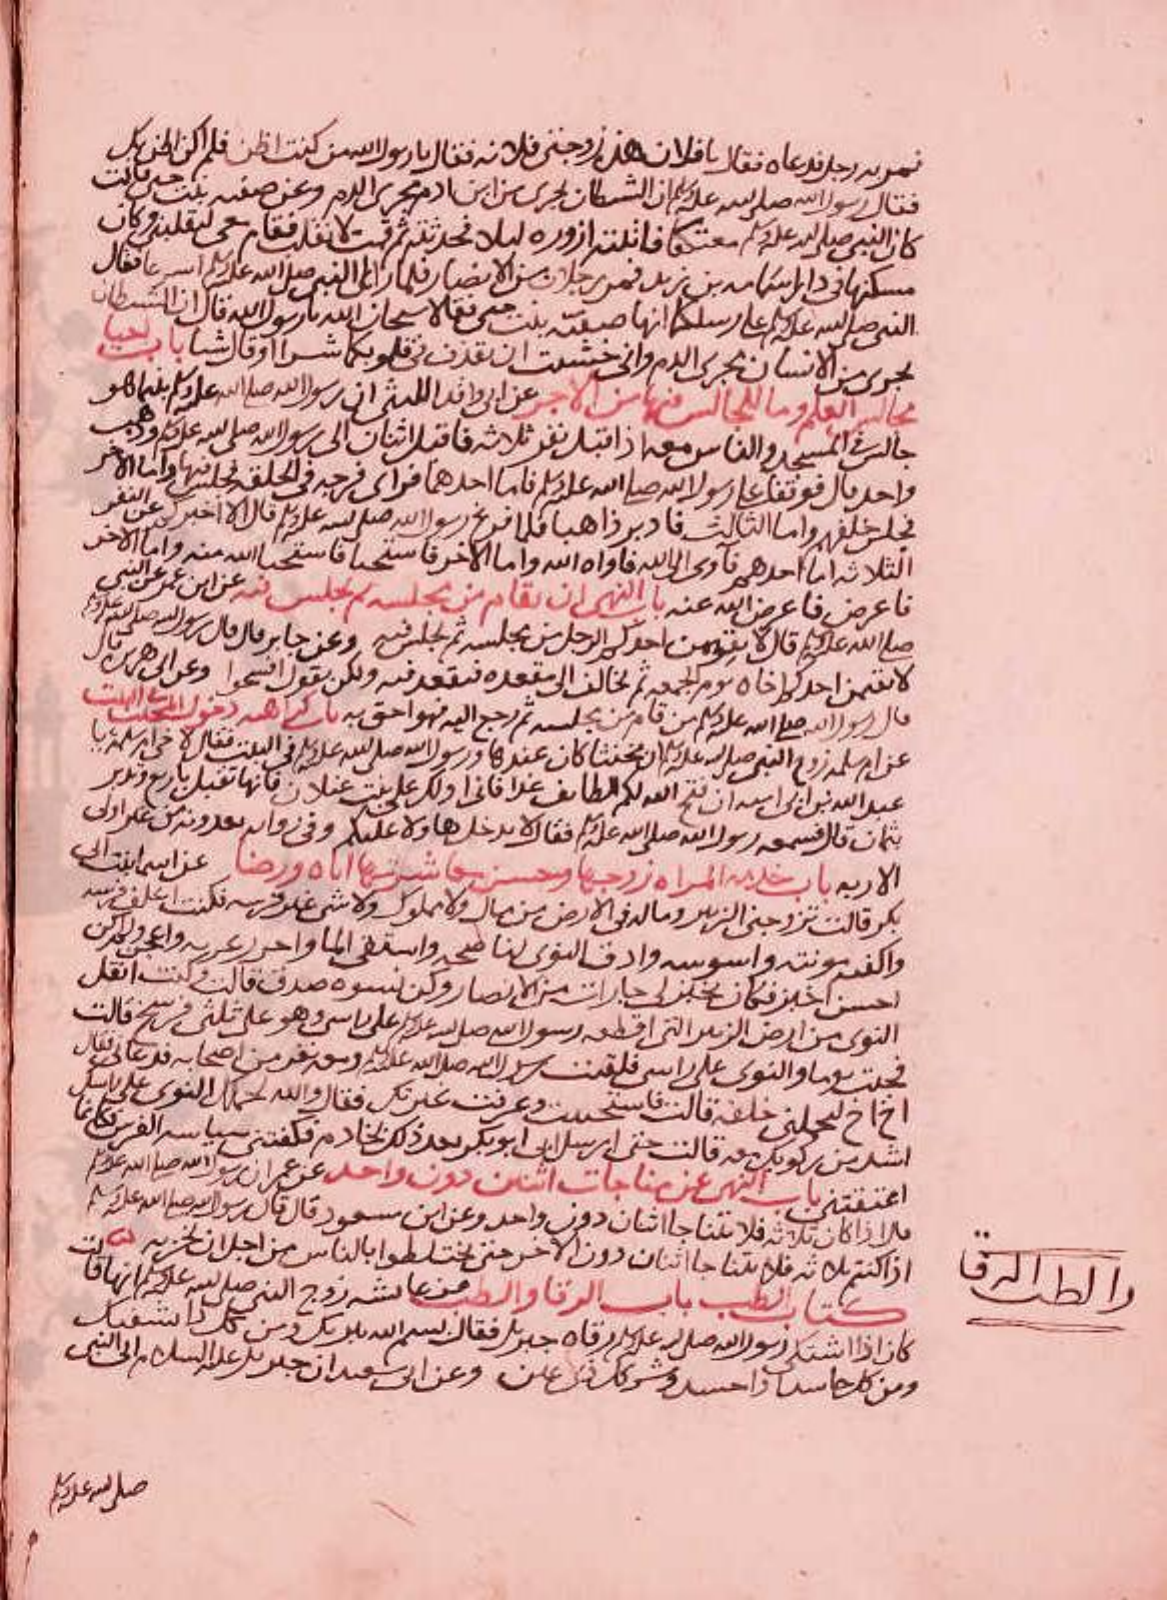 فمر به رجل فدعاه فقال يا فلان هذه زوجتي فلانه فقال يا رسول الله من كنت اظن فلم اكن اظن بك
فقال رسول الله صلى الله عليه وسلم ان الشيطان يجري من ابن ادم مجرى الدم وعن صفيه بنت حيي قالت
كان النبي صلى الله عليه وسلم معتكفا فاتيته ازوره ليلا فحدثته ثم قمت لانقلب فقام معي ليقلبني وكان
مسكنها في دار اسامه بن زيد فمر رجلان من الانصار فلما رايا النبي صلى الله عليه وسلم اسرعا فقال
النبي صلى الله عليه وسلم على رسلكما انها صفيه بنت حيي فقالا سبحان الله يا رسول الله قال ان الشيطان
يجري من الانسان مجرى الدم واني خشيت ان يقذف في قلوبكما شرا او قال شيا باب
مجالس العلم وما للمجالس فيها من الاجر عن ابي واقد الليثي ان رسول الله صلى الله عليه وسلم بينما هو
جالس في المسجد والناس معه اذ اقبل نفر ثلاثه فاقبل اثنان الى رسول الله صلى الله عليه وسلم وذهب
واحد قال فوقفا على رسول الله صلى الله عليه وسلم فاما احدهما فراى فرجه في الحلقه فجلس فيها واما الاخر
فجلس خلفهم واما الثالث فادبر ذاهبا فلما فرغ رسول الله صلى الله عليه وسلم قال الا اخبركم عن النفر
الثلاثه اما احدهم فآوى الى الله فاواه الله واما الاخر فاستحيا فاستحيا الله منه واما الاخر
فاعرض فاعرض الله عنه باب النهي ان يقام من مجلسه ثم يجلس فيه عن ابن عمر عن النبي
صلى الله عليه وسلم قال لا يقيمن احدكم الرجل من مجلسه ثم يجلس فيه وعن جابر قال قال رسول الله صلى الله عليه وسلم
لا يقيمن احدكم اخاه يوم الجمعه ثم يخالف الى مقعده فيقعد فيه ولكن يقول افسحوا وعن ابي هريره قال
قال رسول الله صلى الله عليه وسلم من قام من مجلسه ثم رجع اليه فهو احق به باب كراهيه دخول المخنث البيت
عن ام سلمه زوج النبي صلى الله عليه وسلم ان مخنثا كان عندها ورسول الله صلى الله عليه وسلم في البيت فقال لاخي ام سلمة يا
عبد الله بن ابي اميه ان فتح الله لكم الطايف غدا فاني ادلك على بنت غيلان فانها تقبل باربع وتدبر
بثمان قال فسمعه رسول الله صلى الله عليه وسلم فقال لا يدخل هاولا عليكم وفي روايه يعدونه من غير اولي
الاربه باب خدمه المراه زوجها وحسن معاشرتها اياه ورضا عن اسما بنت ابي
بكر قالت تزوجني الزبير وماله في الارض من مال ولا مملوك ولا شي غير فرسه فكنت اعلف فرسه
واكفيه مونته واسوسه وادق النوى لناضحه واستقي الما واخرز غربه واعجن ولم اكن
احسن اخبز فكان يخبز لي جارات من الانصار وكن نسوه صدق قالت وكنت انقل
النوى من ارض الزبير التي اقطعه رسول الله صلى الله عليه وسلم على راسي وهو على ثلثي فرسخ قالت
فجئت يوما والنوى على راسي فلقيت رسول الله صلى الله عليه وسلم ومعه نفر من اصحابه فدعاني فقال
اخ اخ ليحملني خلفه قالت فاستحييت وعرفت غيرتك فقال والله لحملك النوى على راسك
اشد من ركوبك معه قالت حتى ارسل الي ابو بكر بعد ذلك بخادم فكفتني سياسه الفرس فكانما
اعتقتني باب النهي عن مناجات اثنين دون واحد عن ابن عمر ان رسول الله صلى الله عليه وسلم
قال اذا كان ثلاثه فلا يتناجا اثنان دون واحد وعن ابن مسعود قال قال رسول الله صلى الله عليه وسلم
اذا كنتم ثلاثه فلا يتناجا اثنان دون الاخر حتى يختلطوا بالناس من اجل ان يحزنه
كتاب الطب باب الرقا والطب عن عايشه زوج النبي صلى الله عليه وسلم انها قالت
كان اذا اشتكى رسول الله صلى الله عليه وسلم رقاه جبريل فقال بسم الله يبريك ومن كل دا يشفيك
ومن كل حاسد اذا حسد وشر كل ذي عين وعن ابي سعيد ان جبريل عليه السلام اتى النبي
صلى الله عليه وسلم
والطب الرقا